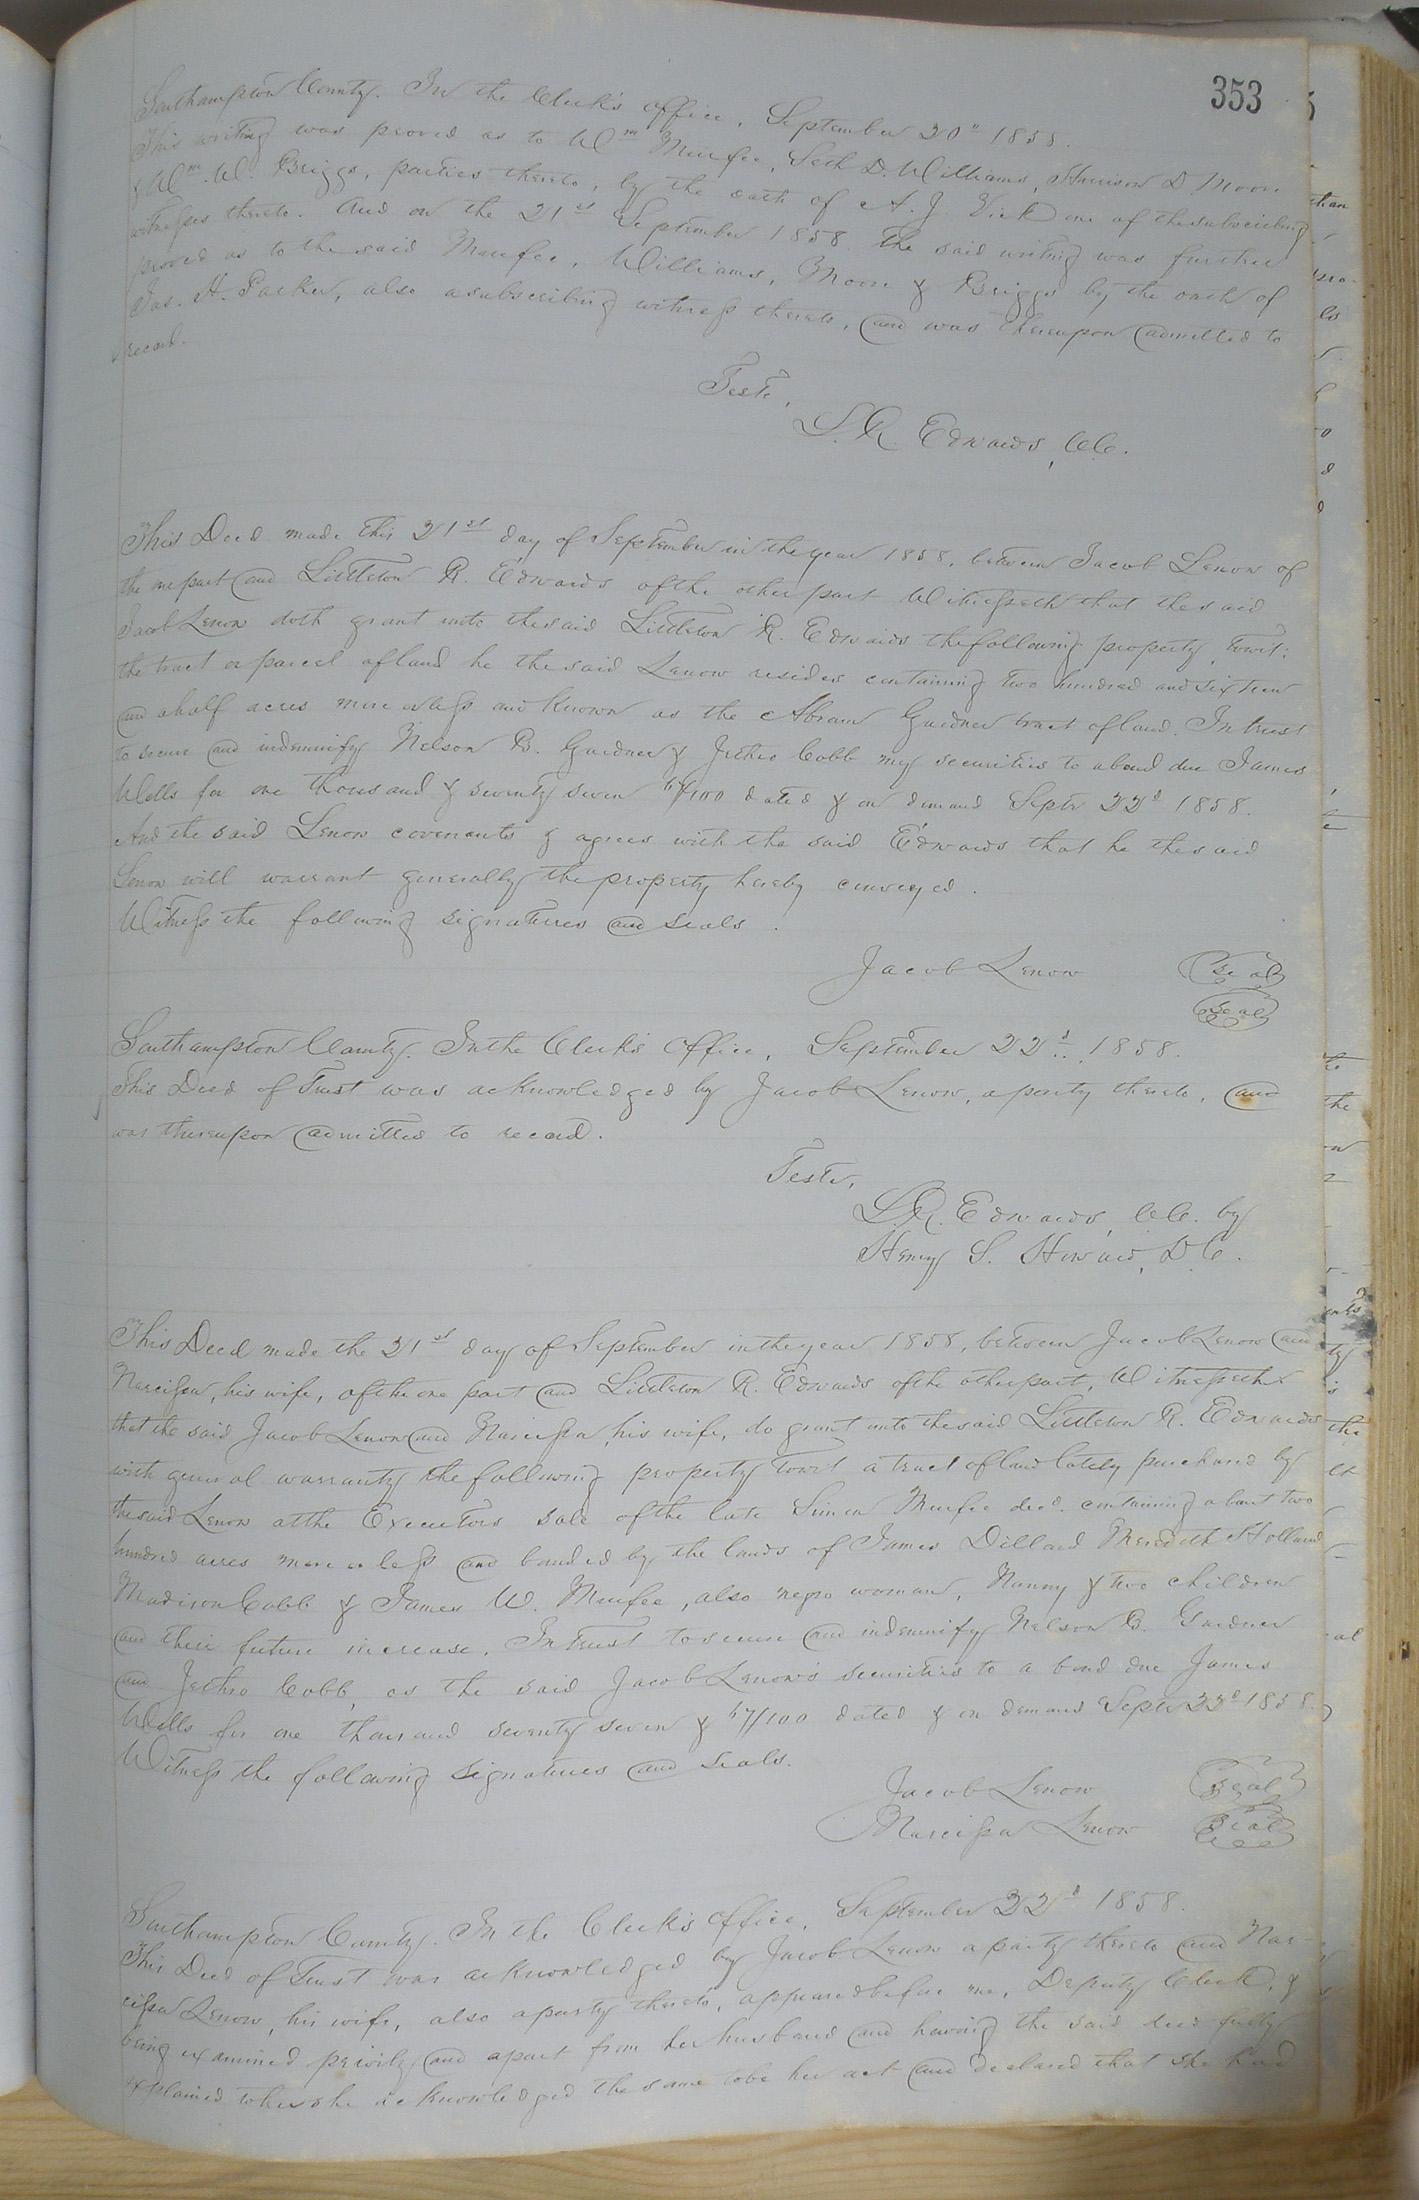 353
Southampton County. In the Clerk's office, September 20" 1858.
This writing was proved as to Wm Murfee, Seth D. Williams, Harrison D Moore
& Wm. W. Briggs, parties thereto, by the oath of A. J. Vick one of the subscribing
witnesses thereto. And on the 21st September 1858 the said writing was further
proved as to the said Murfee, Williams, Moore & Briggs by the oath of
Jas. H. Parker, also a subscribing witness thereto, and was thereupon admitted to
record.
Teste,
L. R. Edwards, C.C.
This Deed made this 21st day of September in the year 1858, between Jacob Lenow of
the one part and Littleton R. Edwards of the other part Witnesseth that the said
Jacob Lenow doth grant unto the said Littleton R. Edwards the following property, towit:
the tract or parcel of land he the said Lenow resides containing two hundred and sixteen
and a half acres more or less and known as the Abram Gardner tract of land. In trust
to secure and indemnify Nelson B. Gardner & Jethro Cobb my securities to a bond due James
Wells for one thousand & seventy seven 67/100 dated & on demand Septr 22d 1858.
And the said Lenow covenants & agrees with the said Edwards that he the said
Lenow will warrant generally the property hereby conveyed.
Witness the following signatures and seals.
Jacob Lenow Seal
Seal
Southampton County. In the Clerk's Office, September 22d 1858.
This Deed of Trust was acknowledged by Jacob Lenow, a party thereto, and
was thereupon admitted to record.
Teste,
L. R. Edwards, C.C. by
Henry S. Howard, D.C.
This Deed made the 21st day of September in the year 1858, between Jacob Lenow and
Narcissa, his wife, of the one part and Littleton R. Edwards of the other part, Witnesseth
that the said Jacob Lenow and Narcissa, his wife, do grant unto the said Littleton R. Edwards
with general warranty the following property towit a tract of land lately purchased by
the said Lenow at the Executors sale of the late Simon Murfee decd. containing about two
hundred acres more or less and bounded by the lands of James Dillard Meredith Holland
Madison Cobb & James W. Murfee, also negro woman, Nanny & two children
and their future increase. In trust to secure and indemnify Nelson B. Gardner
and Jethro Cobb, as the said Jacob Lenow's securities to a bond due James
Wells for one thousand seventy seven & 67/100 dated & on demand Septr 22d 1858.
Witness the following signatures and seals.
Jacob Lenow Seal
Narcissa Lenow Seal
Southampton County. In the Clerk's office, September 22d 1858.
This Deed of Trust was acknowledged by Jacob Lenow a party thereto and Nar-
cissa Lenow, his wife, also a party thereto, appeared before me, Deputy Clerk, &
being examined privily and apart from her husband and having the said deed fully
explained to her she acknowledged the same to be her act and declared that she had